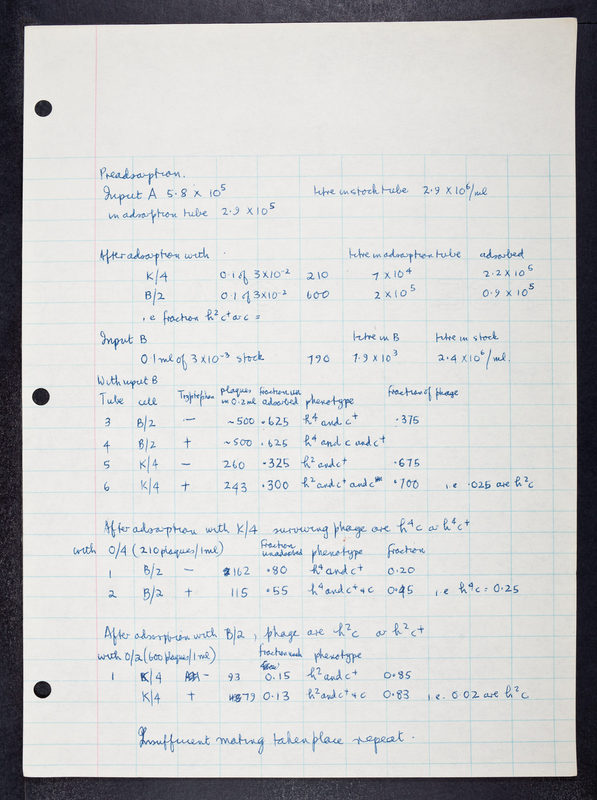 Preadsorption.
Input A 5.8 × 10⁵ titre in stock tube 2.9 × 10⁶/ml
in adsorption tube 2.9 × 10⁵
After adsorption with titre in adsorption tube adsorbed
K/4 0.1 of 3×10⁻² 210 7 × 10⁴ 2.2 × 10⁵
B/2 0.1 of 3×10⁻² 600 2 × 10⁵ 0.9 × 10⁵
i.e fraction h²c⁺ or c =
Input B titre in B titre in stock
0.1 ml of 3 × 10⁻³ stock 790 7.9 × 10³ 2.4 × 10⁶/ml.
With input B
Tube cell Tryptophan plaques in 0.2 ml fraction un adsorbed phenotype fraction of phage
3 B/2 − ~500 .625 h⁴ and c⁺ .375
4 B/2 + ~500 .625 h⁴ and c and c⁺
5 K/4 − 260 .325 h² and c⁺ .675
6 K/4 + 243 .300 h² and c⁺ and c .700 i.e .025 are h²c
After adsorption with K/4 surviving phage are h⁴c or h⁴c⁺
with 0/4 (210 plaques/1ml) fraction unadsorbed phenotype fraction
1 B/2 − 162 .80 h⁴ and c⁺ 0.20
2 B/2 + 115 .55 h⁴ and c⁺ + c 0.45 i.e h⁴c = 0.25
After adsorption with B/2, phage are h²c or h²c⁺
with 0/2 (600 plaques/1ml) fraction phenotype
1 K/4 − 93 0.15 h² and c⁺ 0.85
K/4 + 79 0.13 h² and c⁺ + c 0.83 i.e. 0.02 are h²c
Insufficient mating taken place repeat.